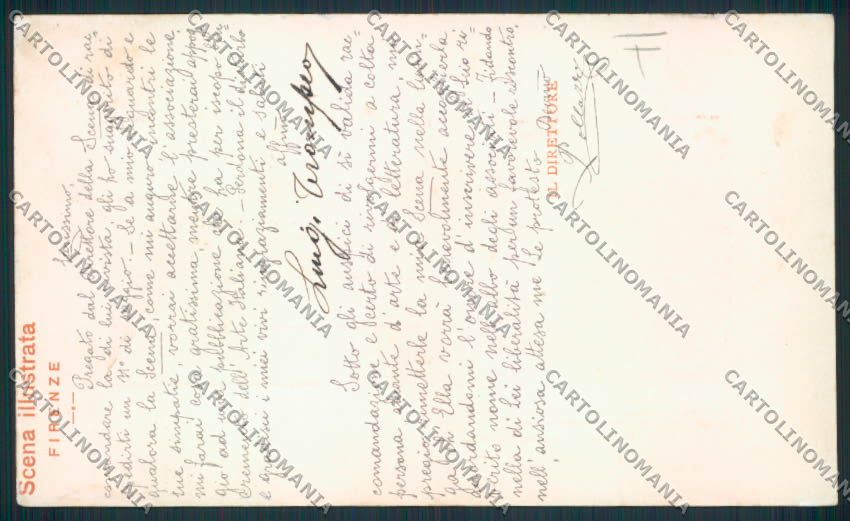 Scena illustrata
FIRENZE
Carissimo,
Pregato dal direttore della Scena di rac-
comandare la di lui rivista, gli ho suggerito di
spedirti un nº di saggio. - Se a mio riguardo e
qualora la Scena, come mi auguro, incontri le
tue simpatie, vorrai accettarne l'associazione,
mi farai cosa gratissima, mentre presterai appog-
gio ad una pubblicazione che ha per iscopo l'in-
cremento dell'Arte Italiana. - Perdona il disturbo
e gradisci i miei vivi ringraziamenti e saluti
affmo
Luigi Trompeo
Sotto gli auspici di sì valida rac-
comandazione e certo di rivolgermi a colta
persona amante d'arte e di letteratura, mi
pregio rimetterle la mia Scena nella lusin-
ga ch'Ella verrà benevolmente accoglierla
accordandomi l'onore d'inscrivere il Suo ri-
verito nome nell'albo degli associati. - Fidando
nella di Lei liberalità per un favorevole riscontro,
nell'ansiosa attesa me Le protesto
IL DIRETTORE
Pollazzi
11
CARTOLINOMANIA